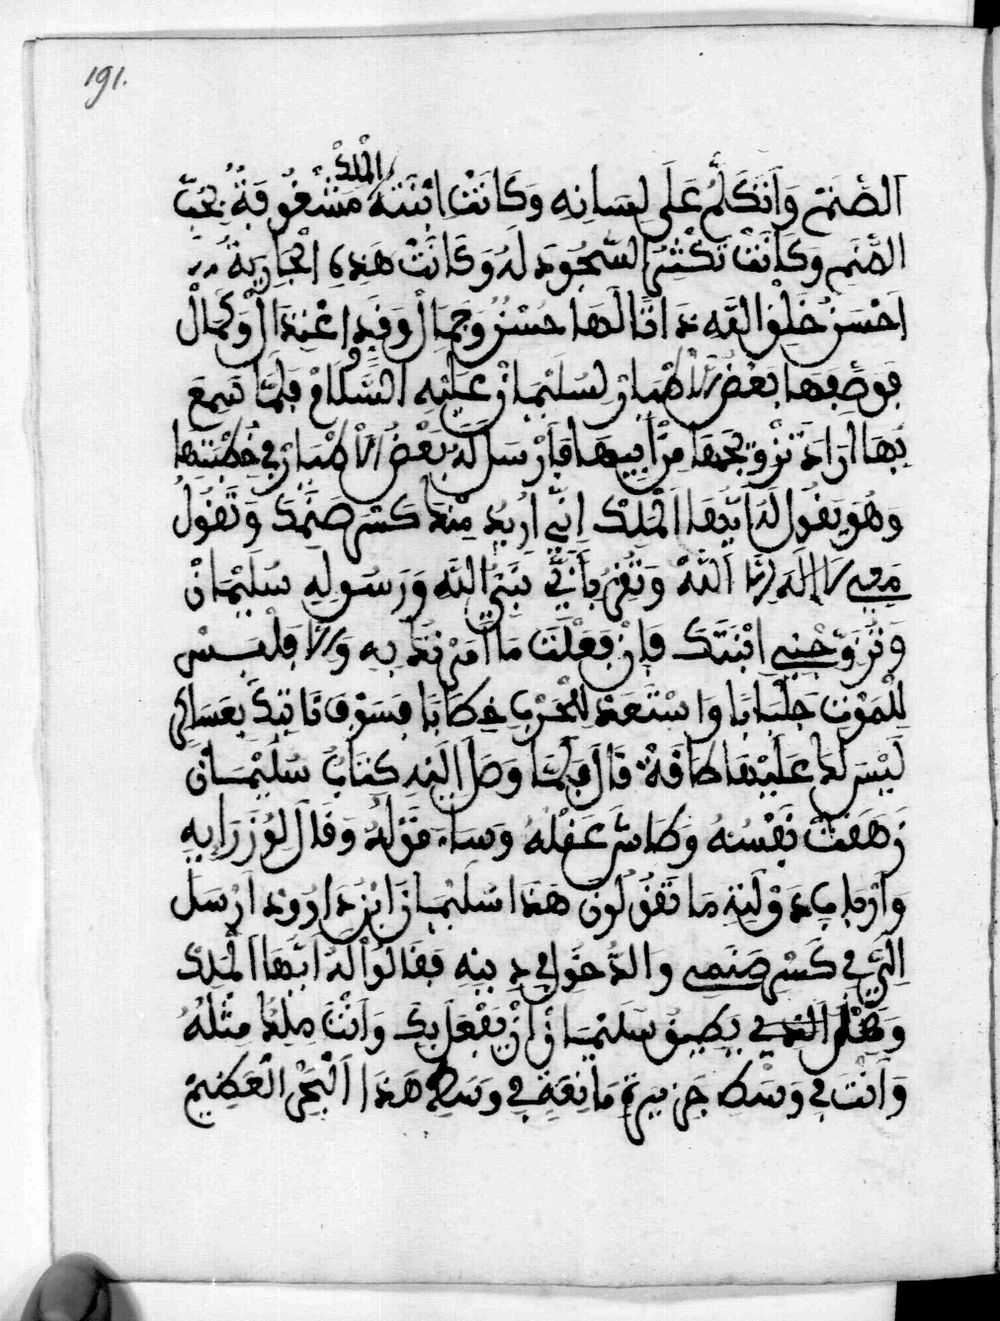 191.
الصَّنَمِ وَاَتَكَلَّمُ عَلَى لِسَانِهِ وَكَانَتْ ابْنَتَهُ الْمَلِكْ مَشْغُوفَةٌ بِحُبّ
الصَّنَمِ وكَانَتْ تَكْثِرُ السُّجُودَ لَهُ وَكَانَتْ هَذِهِ الْجَارِيَةُ
اَحْسَنُ خَلْقِ اللَّهِ ذَاتًا لَهَا حُسْنٌ وَجَمَالٌ وَقَدٍّ اعْتِدَالٌ وَكَمَالْ
فَوَصَفَهَا بَعْضُ الأَطْيَارْ لِسُلَيْمَانْ عَلَيْهِ السَّلَامُ فَلَمَّا سَمِعَ
بِهَا اَرَادَ تَزْوِيجَهَا مِنْ اَبِيهَا فَاَرْسَلَ لَهُ بَعْضُ الأَطْيَارْ فِي خُطْبَتِهَا
وَهُوَ يَقُولْ لَهُ اَيُّهَا الْمَلِكْ اِنِّي اُرِيدُ مِنْكَ كَسْرِ صَنَمِكَ وَتَقُولُ
مَعِي لَا اِلَهَ اِلَّا اَللَّهْ وَتُقِرُ بِأَنِّي نَبِيُّ اللَّهِ وَرَسُولِهِ سُلَيْمَانْ
وَتُزَوِّجْنِي ابْنَتَكَ فَاِنْ فَعَلْتَ مَا اَمَرْتُكَ بِهِ وَاِلَّا فَلْبَسْ
لِلْمَوْتِ جَلْبَابًا وَاسْتَعِدْ لِلْحَرْبِ خِطَابًا فَسَوْفَ نَاتِيكَ بِعَسَاكِرْ
لَيْسَ لَكَ عَلَيْهَا طَاقَةْ قَالَ فَلَمَّا وَصَلَ اِلَيْهِ كِتَابُ سُلَيْمَانْ
زَهَقَتْ نَفْسُهُ وَطَاشَ عَقْلُهُ وَسَاءَ قَوْلَهُ وَقَالَ لِوُزَرَايِهِ
وَاَرْبَابِ دَوْلَتِهِ مَا تَقُولُونَ هَذَا سُلَيْمَانْ ابْنِ دَاوُودْ اَرْسَلْ
اِلَيَّ فِي كَسْرِ صَنَمِي وَالدُّخُولْ فِي دِينِهِ فَقَالُوا لَهُ اَيُّهَا الْمَلِكْ
وَهَلْ يَطِيقُ سُلَيْمَانْ اَنْ يَفْعَلَ بِكَ وَاَنْتَ مَلِكٌ مِثْلُهُ
وَاَنْتَ فِي وَسْطِ جَزِيرَةٍ مَانِعَةٍ فِي وَسَطِ هَذَا اَلْبَحْرِ الْعَظِيمْ